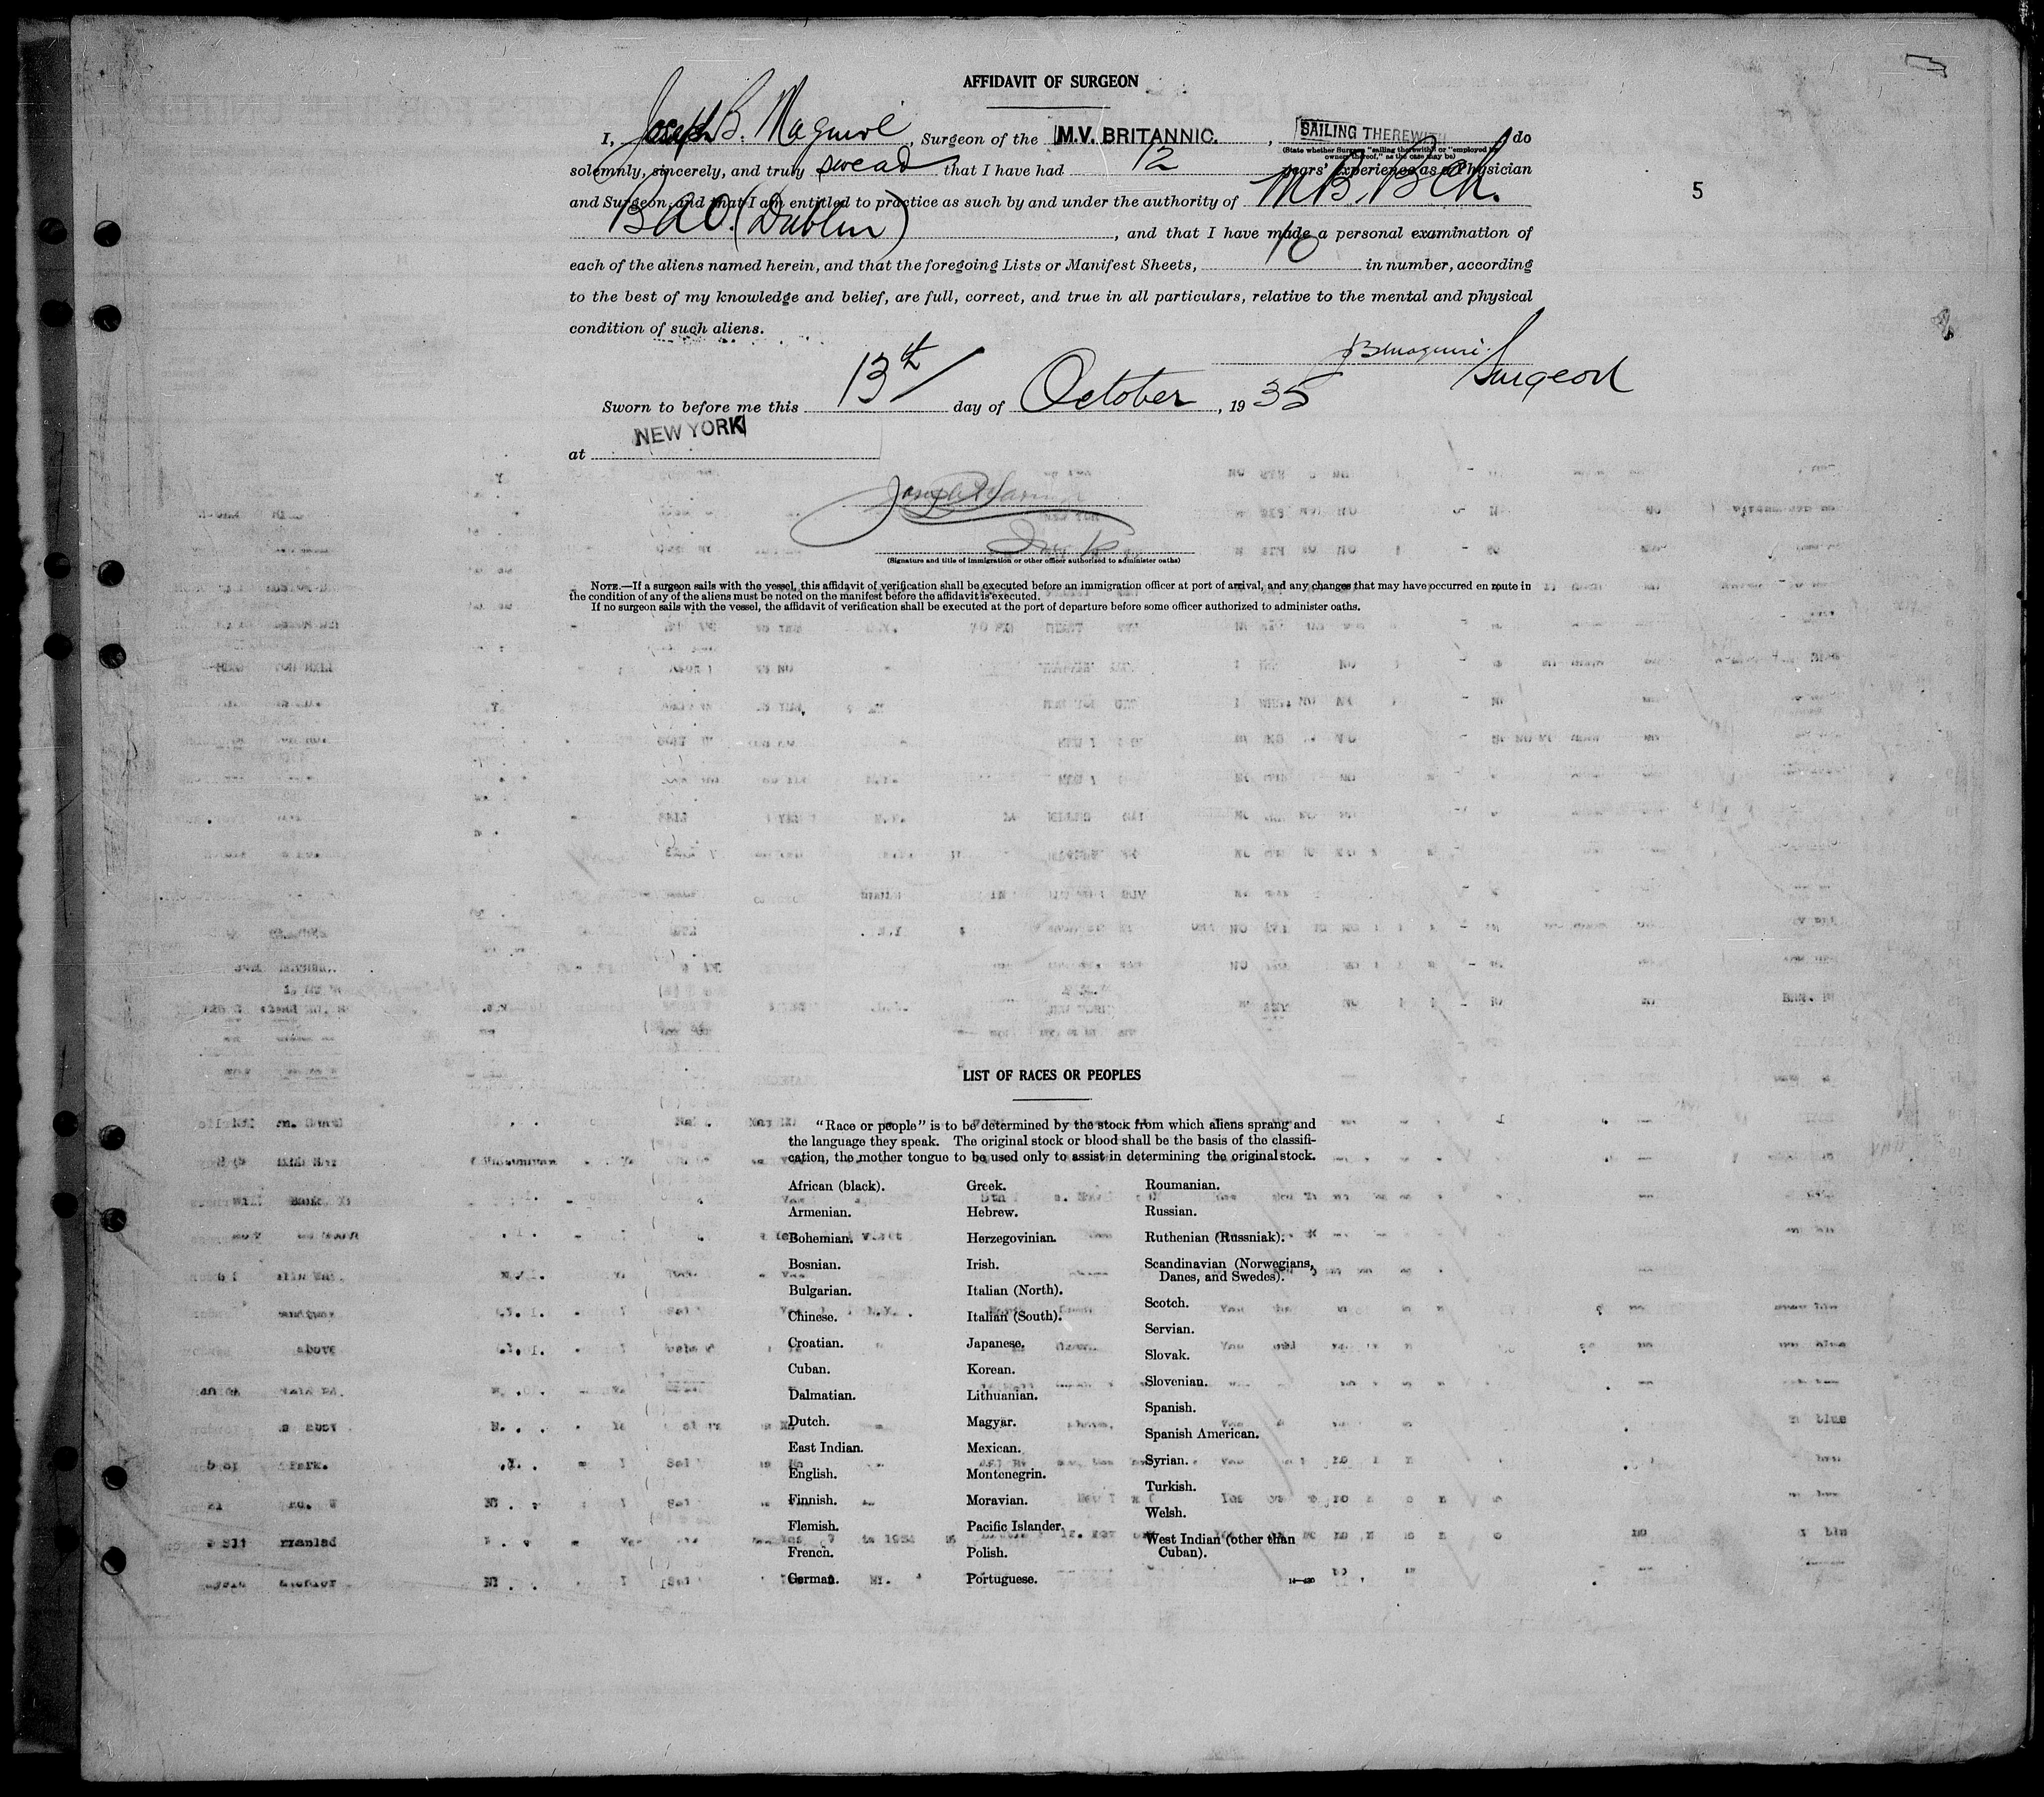 AFFIDAVIT OF SURGEON
I, Joseph B. Maguire, Surgeon of the M.V. BRITANNIC., SAILING THEREWITH, do
(State whether Surgeon "sailing therewith" or "employed by owners thereof," as the case may be)
solemnly, sincerely, and truly swear that I have had 12 years' experience as a Physician
and Surgeon, and that I am entitled to practice as such by and under the authority of M.B. B.Ch.
B.A.O. (Dublin), and that I have made a personal examination of
each of the aliens named herein, and that the foregoing Lists or Manifest Sheets, 10 in number, according
to the best of my knowledge and belief, are full, correct, and true in all particulars, relative to the mental and physical
condition of such aliens.
5
JBMaguire.
Surgeon
Sworn to before me this 13th day of October, 1935
at NEW YORK
(Signature and title of immigration or other officer authorized to administer oaths)
NOTE.—If a surgeon sails with the vessel, this affidavit of verification shall be executed before an immigration officer at port of arrival, and any changes that may have occurred en route in
the condition of any of the aliens must be noted on the manifest before the affidavit is executed.
If no surgeon sails with the vessel, the affidavit of verification shall be executed at the port of departure before some officer authorized to administer oaths.
LIST OF RACES OR PEOPLES
"Race or people" is to be determined by the stock from which aliens sprang and
the language they speak. The original stock or blood shall be the basis of the classifi-
cation, the mother tongue to be used only to assist in determining the original stock.
African (black).
Armenian.
Bohemian.
Bosnian.
Bulgarian.
Chinese.
Croatian.
Cuban.
Dalmatian.
Dutch.
East Indian.
English.
Finnish.
Flemish.
French.
German.
Greek.
Hebrew.
Herzegovinian.
Irish.
Italian (North).
Italian (South).
Japanese.
Korean.
Lithuanian.
Magyar.
Mexican.
Montenegrin.
Moravian.
Pacific Islander.
Polish.
Portuguese.
Roumanian.
Russian.
Ruthenian (Russniak).
Scandinavian (Norwegians,
Danes, and Swedes).
Scotch.
Servian.
Slovak.
Slovenian.
Spanish.
Spanish American.
Syrian.
Turkish.
Welsh.
West Indian (other than
Cuban).